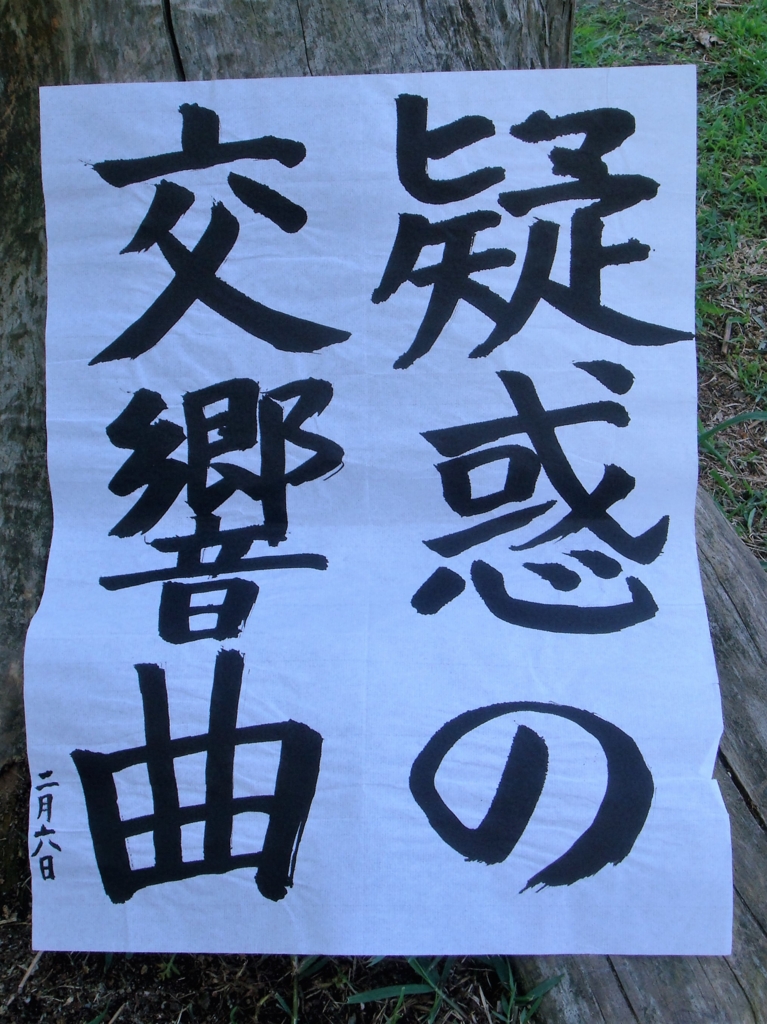 疑惑の
交響曲
二月六日